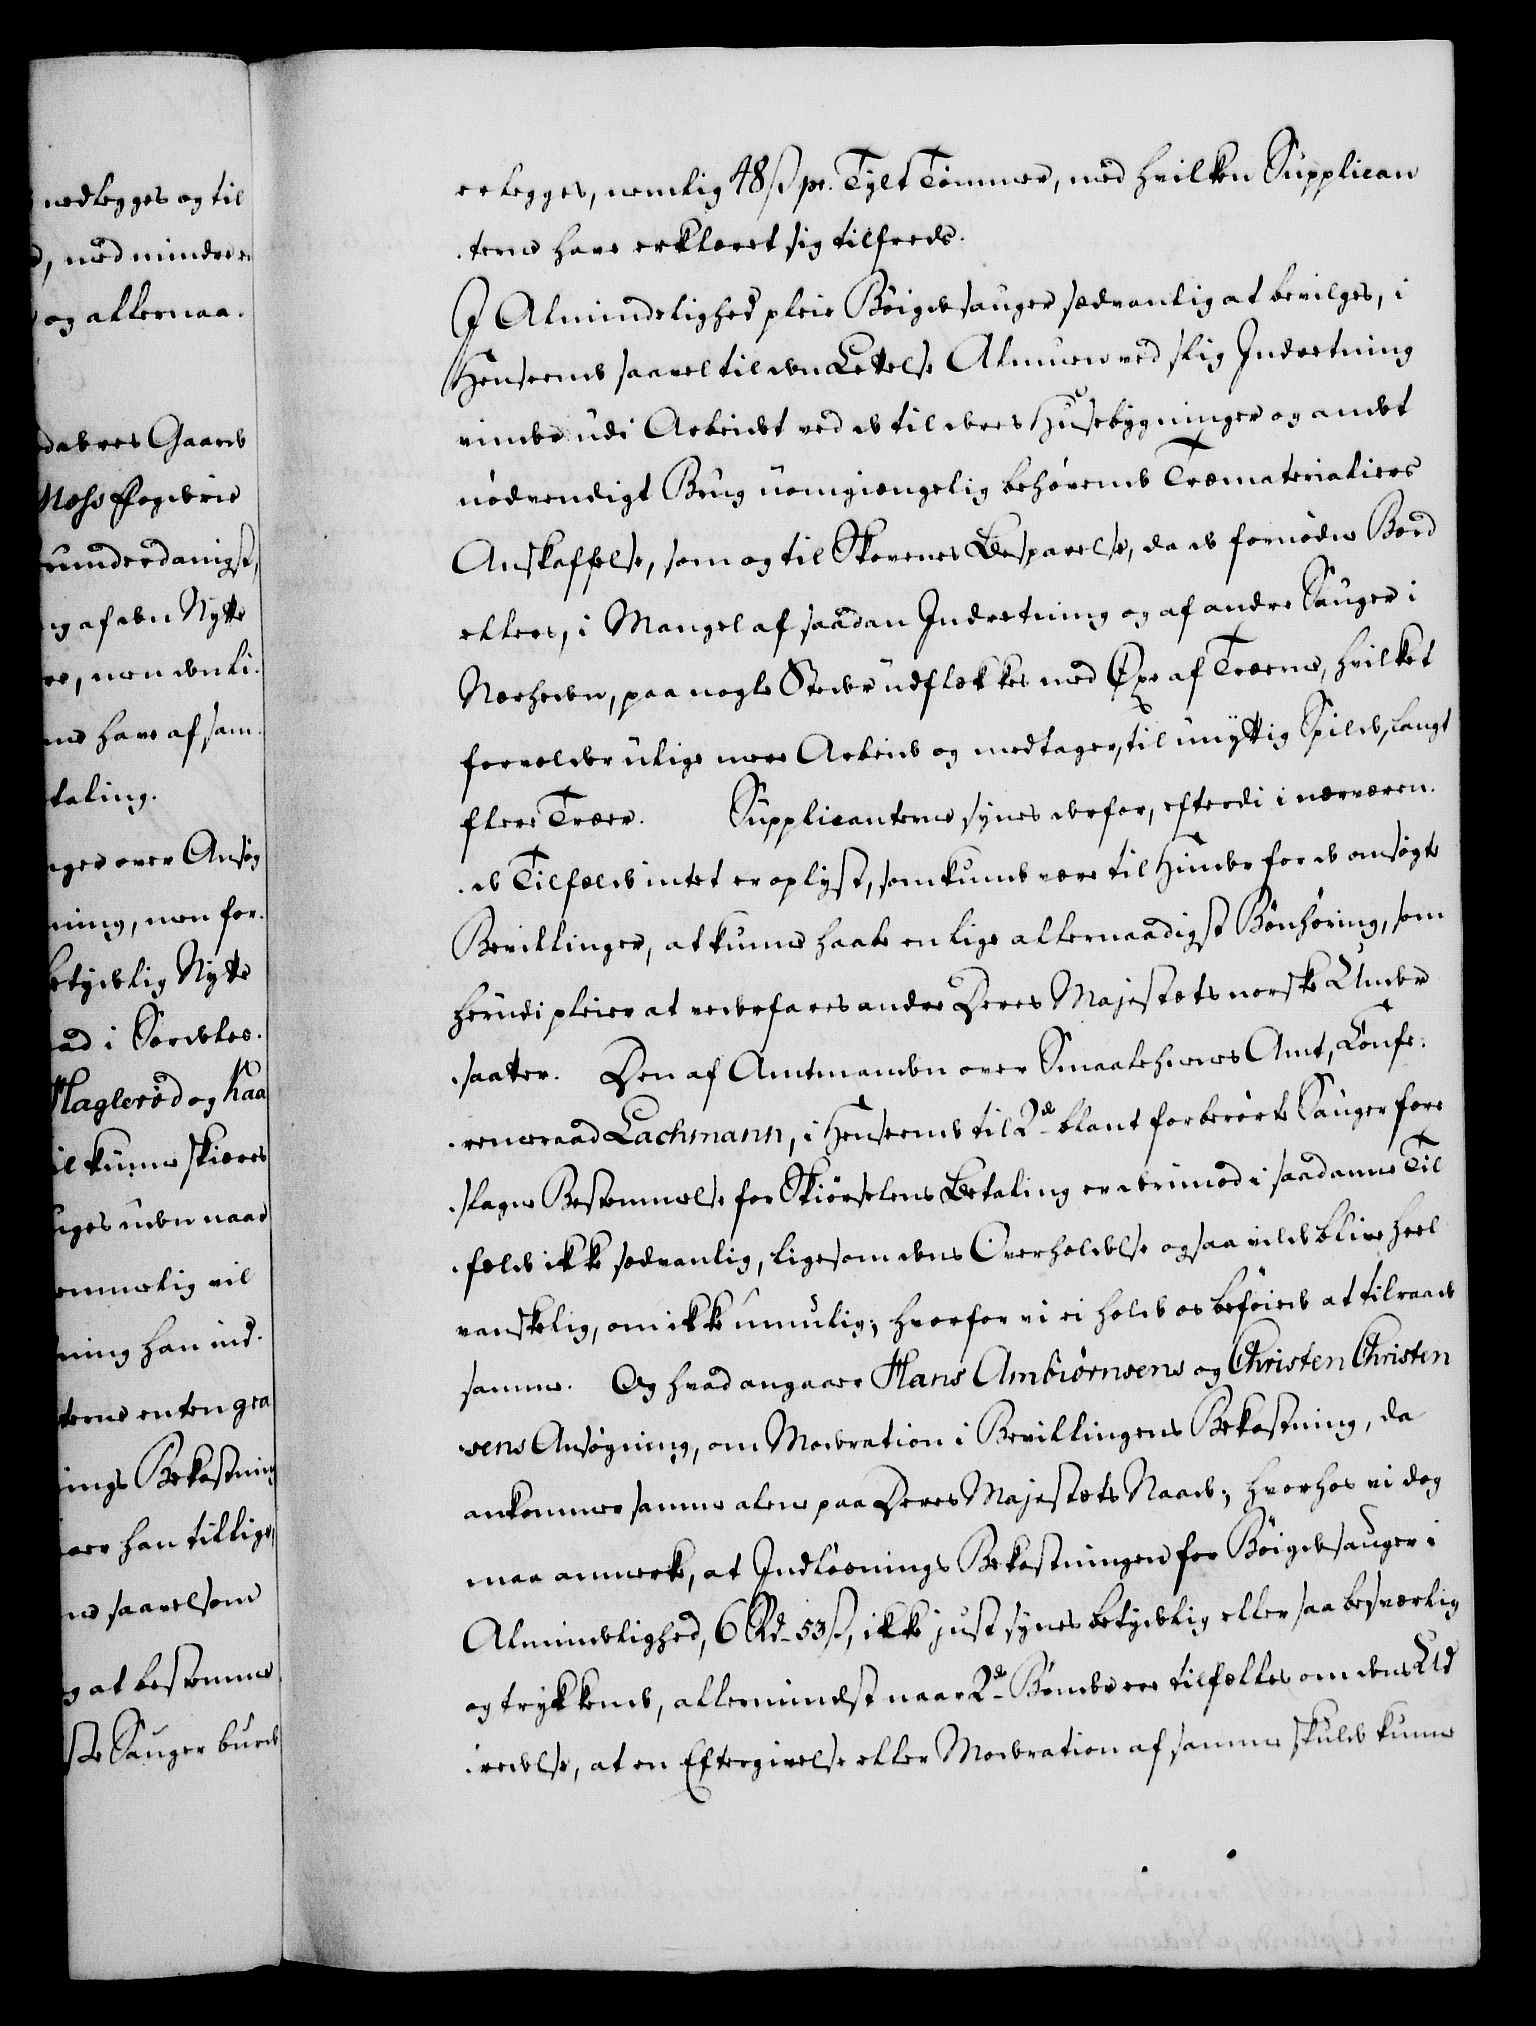 nedlegges og til
, ned mindre
og allernaa.
Gaard
Næss Fogderie
underdanigst,
g af den Nytte
, men den li.
have af sam.
taling.
nger over Ansøg
ning, men for.
betydelig Nytte
Haglerød og Kaa
il kunne skiæres
uden naad
vil
ning han ind.
terne enten gra
ings Bekostning
han tillige,
saavelsom
g at bestemme
Sauger burde
erlegges, nemlig 48 ß pr. Tylt Tømmer, med hvilken Supplican
terne have erklæret sig tilfreds.
I Almindelighed pleie Bøigdesauger sædvanlig at bevilges, i
Henseende saavel til den Lettelse Almuen ved slig Indretning
vinder udi Arbeidet ved de til deres Husebygninger og andet
nødvendigt Brug uomgiængelig behøvende Træmaterialiers
Anskaffelse, som og til Skovenes Besparelse, da de fornødne Bord
ellers, i Mangel af saadan Indretning og af andre Sauger i
Nærheden, paa nogle Steder udflækkes med Øxe af Træerne, hvilket
forvolder ulige mere Arbeide og medtager, til unyttig Spilde, langt
flere Træer. Supplicanterne synes derfor, efterdi i nærværen.
de Tilfælde intet er oplyst, som kunde være til Hinder for de ansøgte
Bevillinger, at kunne haabe en lige allernaadigst Bønhøring, som
herudi pleier at vederfares andre Deres Majestæts norske Under
saatter. Den af Amtmanden over Smaalehnenes Amt, Confe.
renceraad Lachmann, i Henseende til 2de blant forberørte Sauger fore
slagne Bestemmelse for Skiørselens Betaling er derimod i saadanne Til
fælde ikke sædvanlig, ligesom dens Overholdelse ogsaa vilde blive heel
vanskelig, om ikke umulig; hvorfor vi ei holde os beføiede at tilraade
samme. Og hvad angaaer Hans Ambiørnsens og Christen Christen
sens Ansøgning, om Moderation i Bevillingens Bekostning, da
ankommer samme alene paa Deres Majestæts Naade; hvorhos vi dog
maa anmerke, at Indløsnings Bekostningen for Bøigdesauger i
Almindelighed, 6 Rd. 53 ß, ikke just synes betydelig eller saa besværlig
og trykkende, allermindst naar 2de Bønder ere tilfælles om dens Ud
redelse, at en Eftergivelse eller Moderation af samme skulde kunne